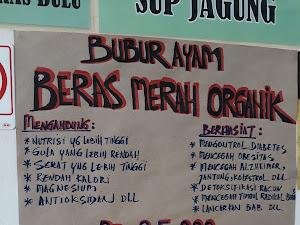 DULU
SUP JAGUNG
BUBUR AYAM
BERAS MERAH ORGANIK
MENGANDUNG :
* NUTRISI YG LEBIH TINGGI
* GULA YANG LEBIH RENDAH
* SERAT YG LEBIH TINGGI
* RENDAH KALORI
* MAGNESIUM
* ANTIOKSIDAN DLL
BERKHASIAT :
* MENGONTROL DIABETES
* MENCEGAH OBESITAS
* MENCEGAH ALZHEIMER,
JANTUNG, KOLESTROL DLL
* DETOKSIFIKASI RACUN
* MENCEGAH TIMBUL RADIKAL
* LANCARKAN BAB DLL